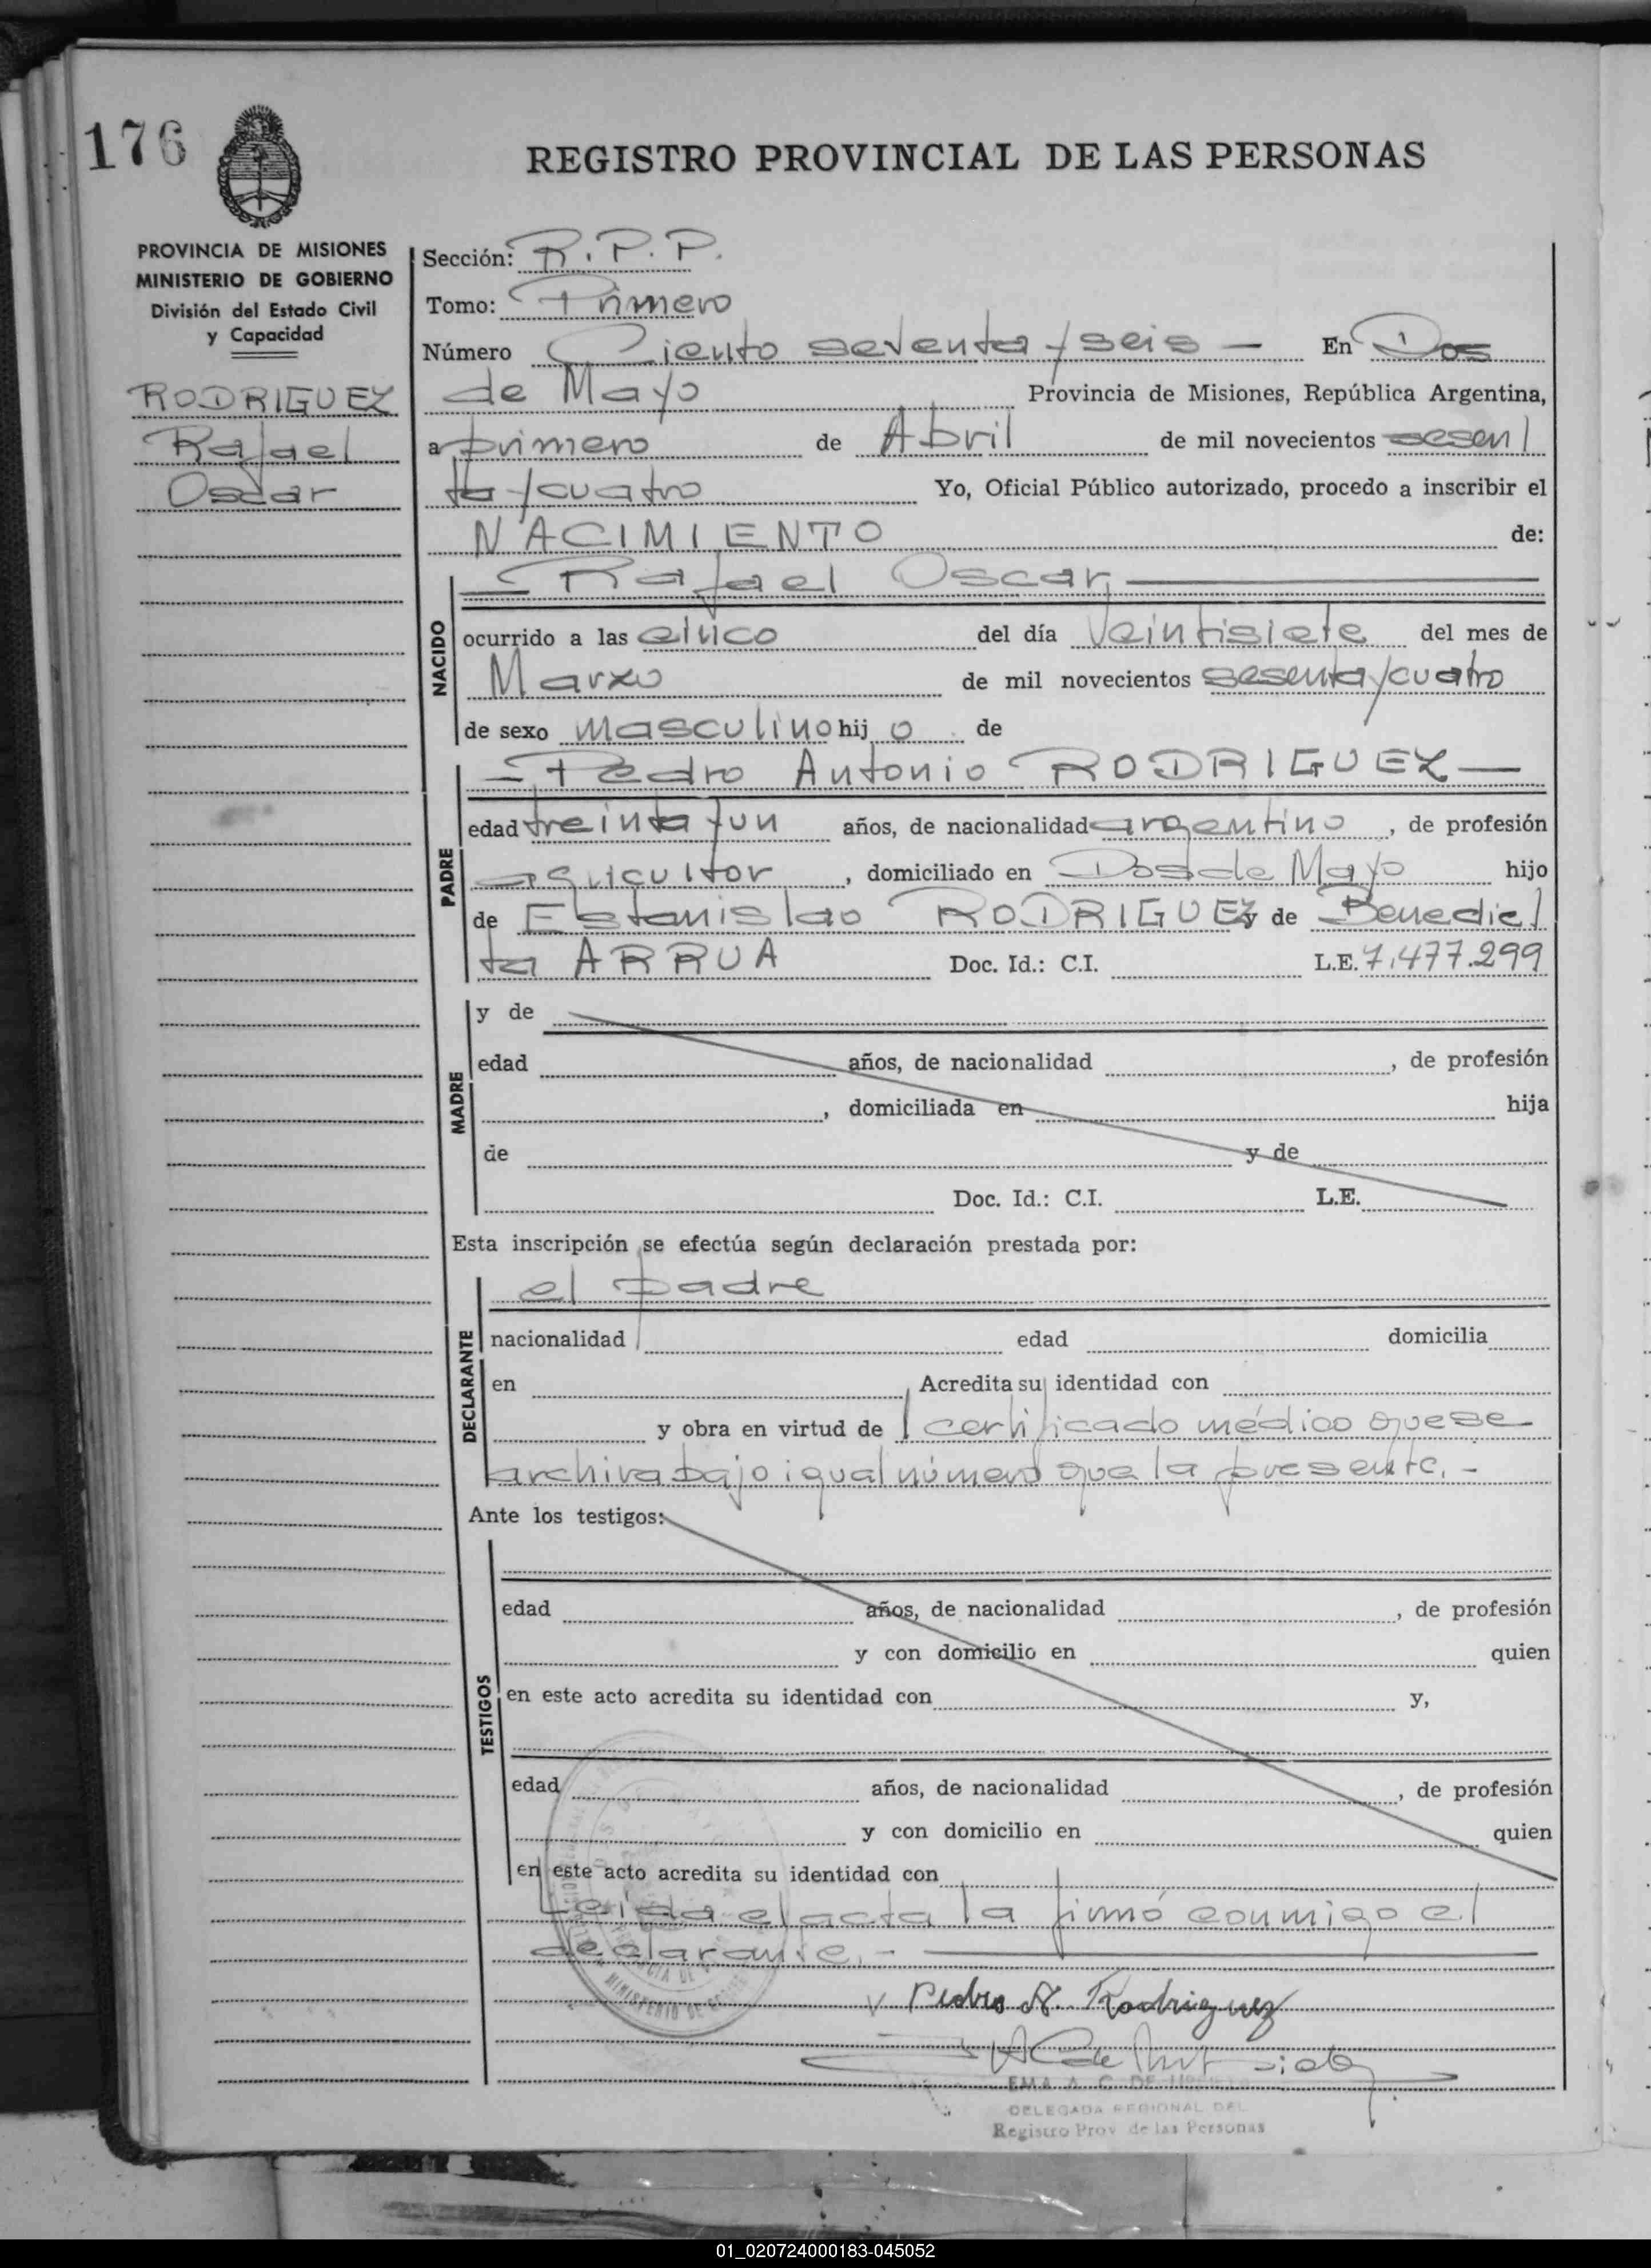 176
REGISTRO PROVINCIAL DE LAS PERSONAS
PROVINCIA DE MISIONES
MINISTERIO DE GOBIERNO
División del Estado Civil
y Capacidad
RODRIGUEZ
Rafael
Oscar
Sección: R.P.P.
Tomo: Primero
Número Ciento setenta y seis — En Dos
de Mayo Provincia de Misiones, República Argentina,
a primero de Abril de mil novecientos sesen/
ta y cuatro Yo, Oficial Público autorizado, procedo a inscribir el
NACIMIENTO de:
NACIDO
— Rafael Oscar, —
ocurrido a las cinco del día Veintisiete del mes de
Marzo de mil novecientos sesenta y cuatro
de sexo masculino hij o de
PADRE
— Pedro Antonio RODRIGUEZ —
edad treinta y un años, de nacionalidad argentino, de profesión
agricultor, domiciliado en Dos de Mayo hijo
de Estanislao RODRIGUEZ y de Benedic/
ta ARRUA Doc. Id.: C.I. L.E. 7.477.299
MADRE
y de
edad años, de nacionalidad , de profesión
, domiciliada en hija
de y de
Doc. Id.: C.I. L.E.
Esta inscripción se efectúa según declaración prestada por:
DECLARANTE
el padre
nacionalidad edad domicilia
en Acredita su identidad con
y obra en virtud de certificado médico que se
archiva bajo igual número que la presente.-
Ante los testigos:
TESTIGOS
edad años, de nacionalidad , de profesión
y con domicilio en quien
en este acto acredita su identidad con y,
edad años, de nacionalidad , de profesión
y con domicilio en quien
en este acto acredita su identidad con
Leída el acta la firmó conmigo el
declarante.- —
Pedro A. Rodriguez
MINISTERIO DE
EMA A. C. DE
DELEGADA REGIONAL DEL
Registro Prov de las Personas
01_020724000183-045052